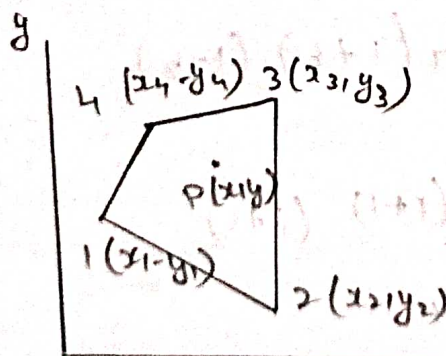 y
4 (x4-y4) 3 (x3,y3)
P(x,y)
1 (x1-y1)
2 (x2,y2)